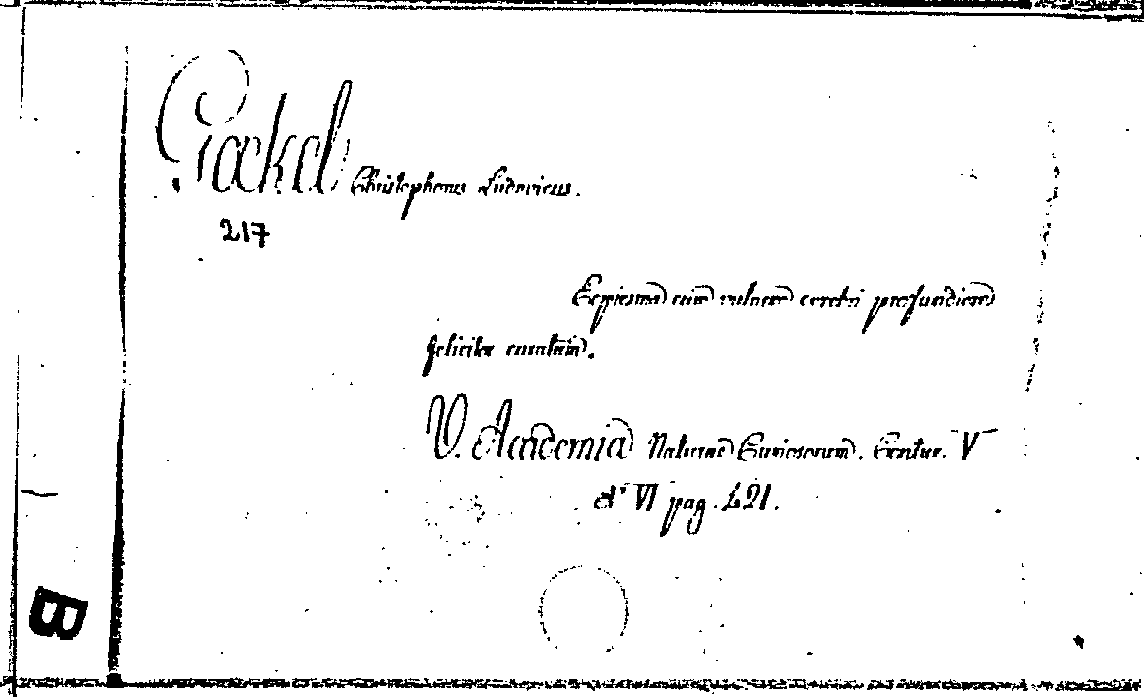 Göckel Christophorus Ludovicus.
217
cum vulnere cerebri profundiore
feliciter curatum.
V. Academia Naturae Curiosorum. Centur. V
et VI pag. 421.
B